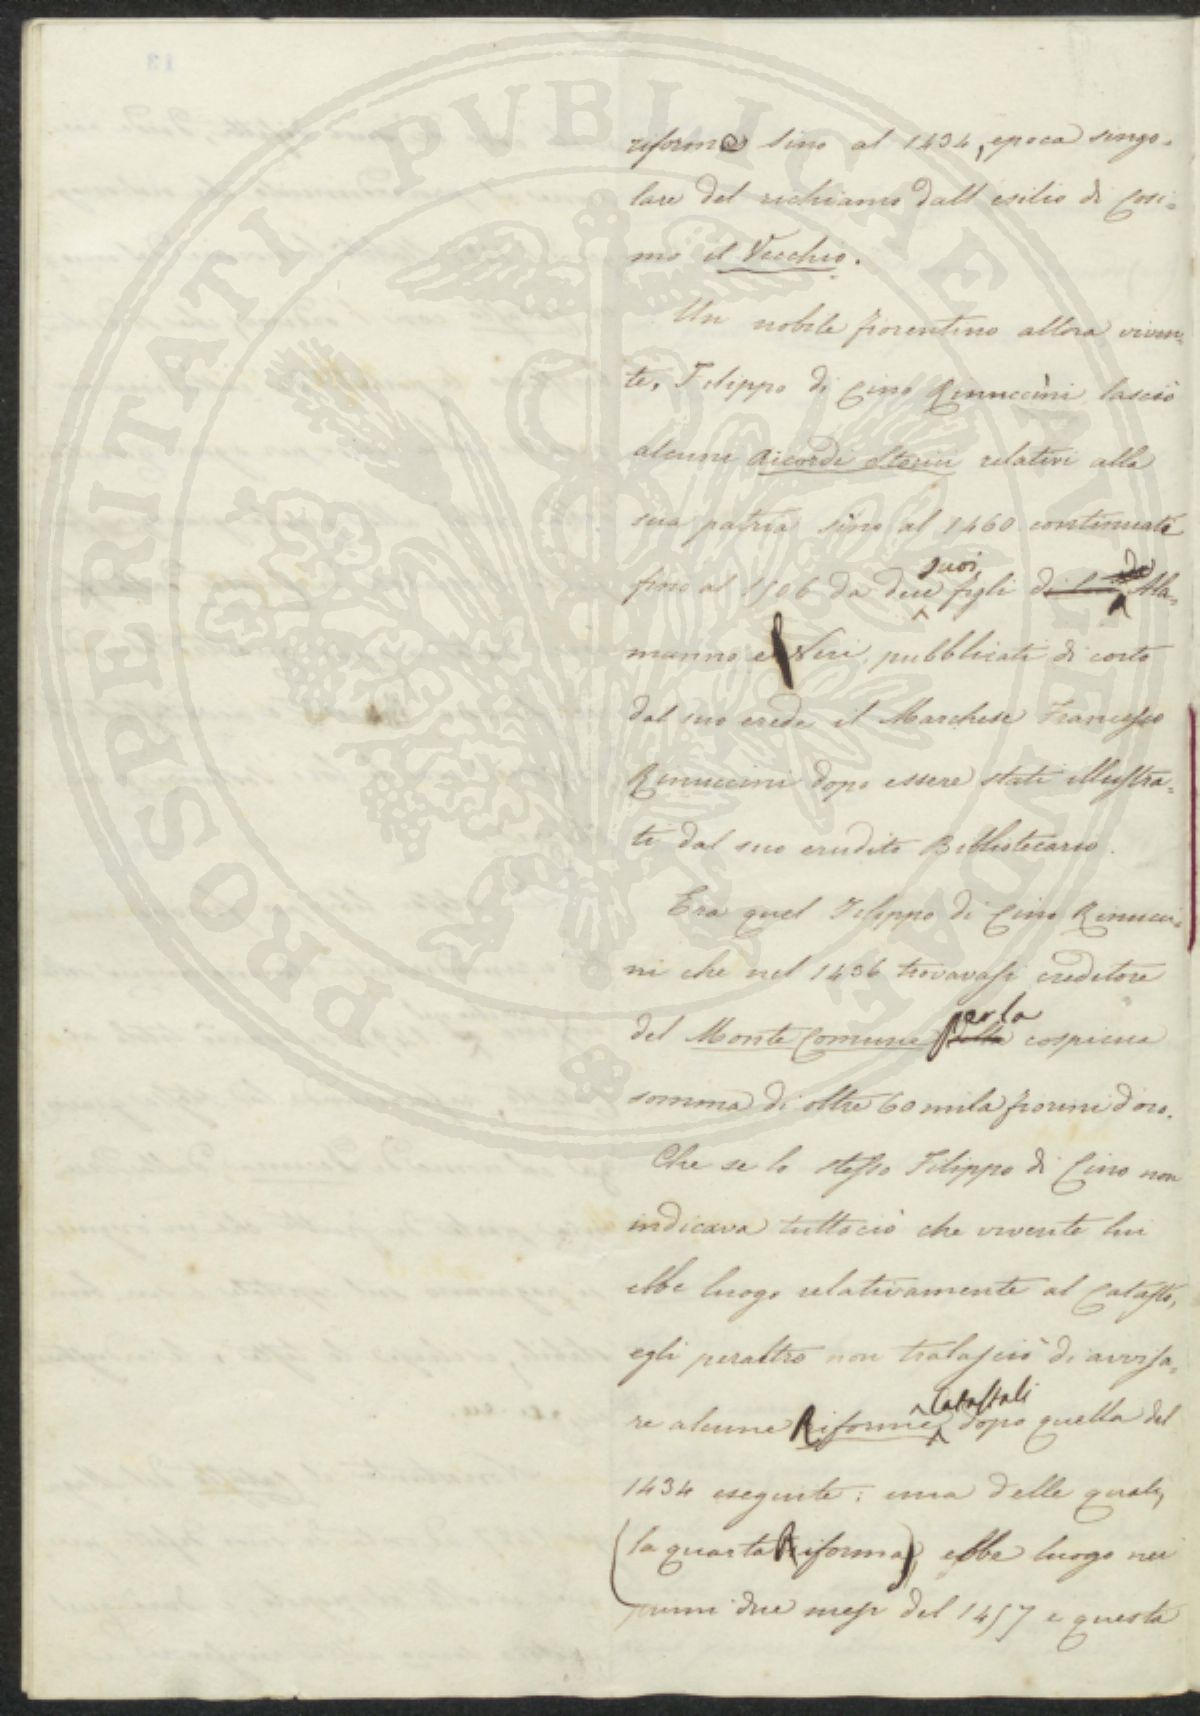 riforme sino al 1434, epoca singo-
lare del richiamo dall esilio di Cosi-
mo il Vecchio.
Un nobile fiorentino allora viven-
te, Filippo di Cino Rinuccini lasciò
alcuni Ricordi Storici relativi alla
sua patria sino al 1460 continuate
fino al 1506 da due suoi figli di lui Ala-
manno e Neri, pubblicati di corto
dal suo erede il Marchese Francesco
Rinuccini dopo essere stati illustra-
ti dal suo erudito Bibliotecario.
Era quel Filippo di Cino Rinucci-
ni che nel 1436 trovavasi creditore
del Monte Comune della per la cospicua
somma di oltre 60 mila fiorini d'oro.
Che se lo stesso Filippo di Cino non
indicava tuttociò che vivente lui
ebbe luogo relativamente al Catasto,
egli peraltro non tralasciò di avvisa-
re alcune Riforme Catastali dopo quella del
1434 eseguite: una delle quali,
(la quarta Riforma), ebbe luogo nei
primi due mesi del 1457 e questa
PROSPERITATI PVBLICAE AVGENDAE
13